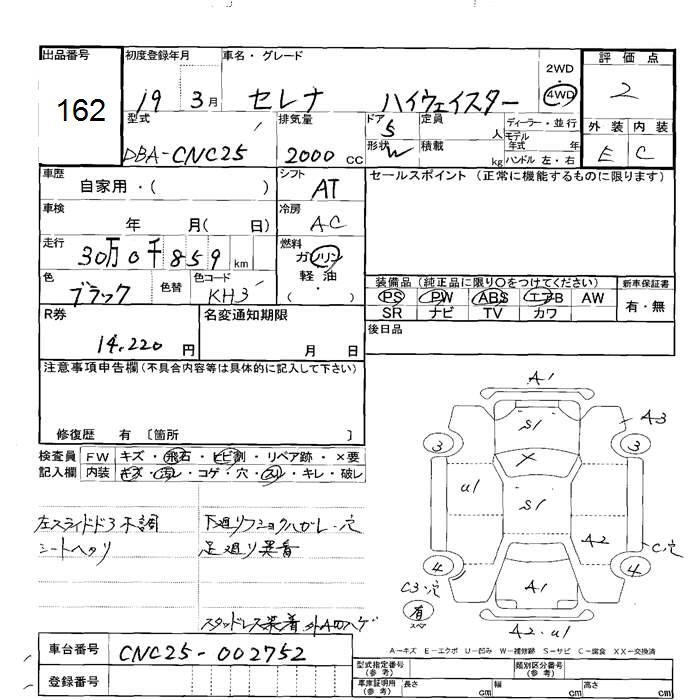 出品番号 初度登録年月 車名・グレード 2WD ・ 4WD 評価点
162 19 3月 セレナ ハイウェイスター 2
型式 排気量 ドア 定員 ディーラー・並行 外装 内装
DBA-CNC25 2000 CC 5 人 モデル年式 年 E C
形状 W 積載 kg ハンドル 左・右
車歴 シフト セールスポイント (正常に機能するものに限ります)
自家用・( ) AT
車検 冷房
年 月( 日) AC
走行 燃料
30万0千859 km ガソリン
軽油
色 色替 色コード ( ・ )
ブラック KH3
装備品 (純正品に限り〇をつけてください) 新車保証書
PS PW ABS エアB AW 有・無
SR ナビ TV カワ
R券 名変通知期限 後日品
14,220 円 月 日
注意事項申告欄(不具合内容等は具体的に記入して下さい)
修復歴 有 〔箇所 〕
検査員 FW キズ・飛石・ヒビ割・リペア跡・×要
記入欄 内装 キズ・汚レ・コゲ・穴・スリ・キレ・破レ
左スライドドア不調 下廻りフショクハガレ・穴
シートヘタリ 足廻り異音
スタッドレス装着 外Aのハゲ
A1
S1 A3
3 3
X
u1 S1
A2
C穴
4 4
C3・穴 A1
有
スペア
A2・u1
A-キズ E-エクボ U-凹み W-補修跡 S-サビ C-腐食 XX-交換済
車台番号 CNC25-002752
型式指定番号(参考) 類別区分番号(参考)
登録番号 車庫証明用(参考) 長さ cm 幅 cm 高さ cm